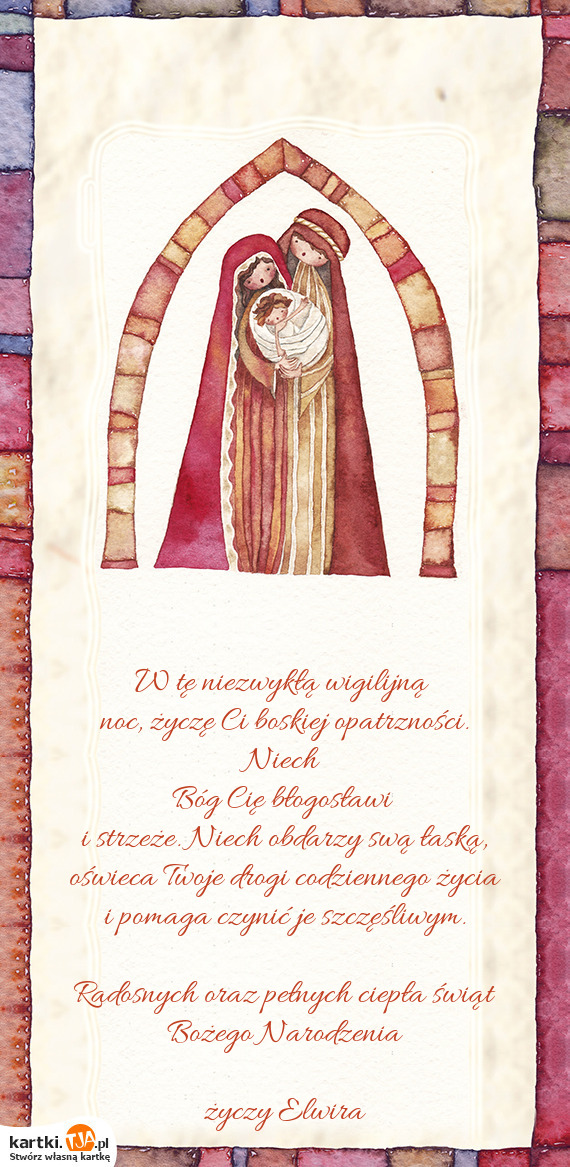 W tę niezwykłą wigilijną
noc, życzę Ci boskiej opatrzności.
Niech
Bóg Cię błogosławi
i strzeże. Niech obdarzy swą łaską,
oświeca Twoje drogi codziennego życia
i pomaga czynić je szczęśliwym.
Radosnych oraz pełnych ciepła świąt
Bożego Narodzenia
życzy Elwira
kartki.TJA.pl
Stwórz własną kartkę